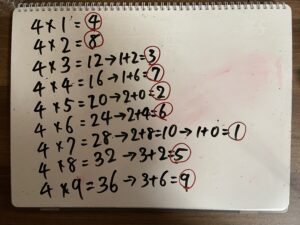 4×1=4
4×2=8
4×3=12→1+2=3
4×4=16→1+6=7
4×5=20→2+0=2
4×6=24→2+4=6
4×7=28→2+8=10→1+0=1
4×8=32→3+2=5
4×9=36→3+6=9